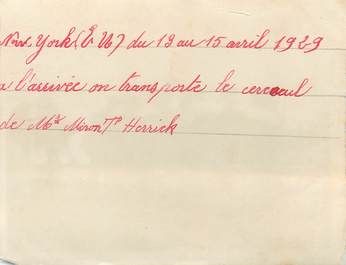 New York (E U) du 13 au 15 avril 1929
a l'arrivée on transporte le cercueul
de Mr Miron Tp Herrick